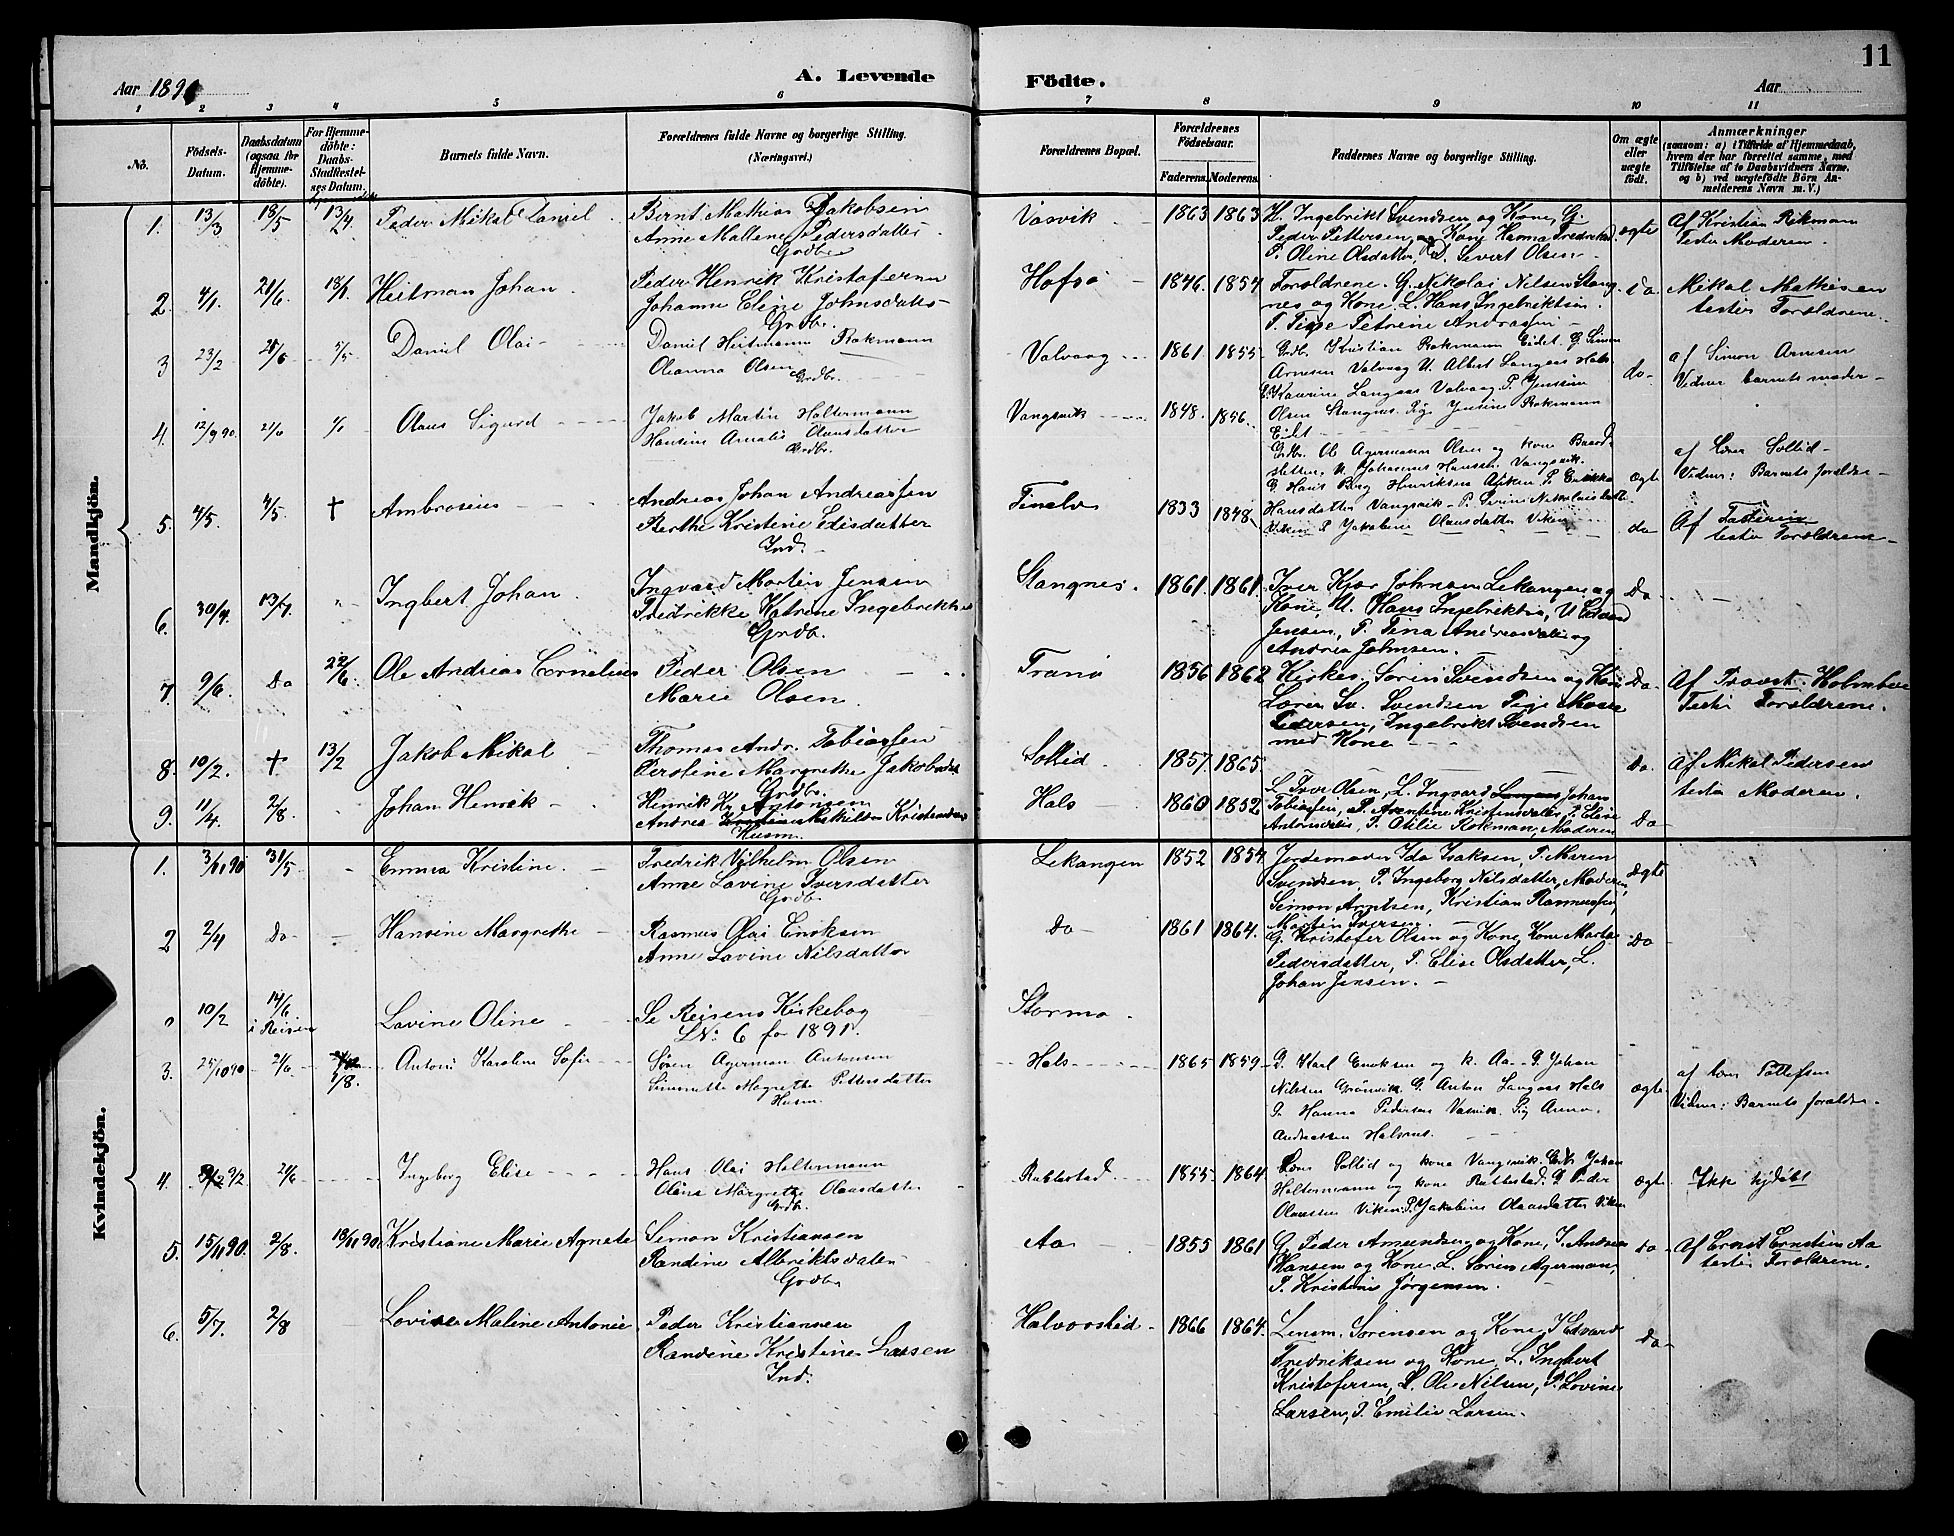 11
Aar 1891
A. Levende
Födte.
Aar
1 2 3 4 5 6 7 8 9 10 11
No.
Födsels-
Datum.
Daabsdatum
(ogsaa for
Hjemme-
döbte).
For Hjemme-
döbte:
Daabs-
Stadfæstel-
ses Datum.
Barnets fulde Navn.
Forældrenes fulde Navne og borgerlige Stilling.
(Næringsvei.)
Forældrenes Bopæl.
Forældrenes
Födselsaar.
Faderens. Moderens.
Faddernes Navne og borgerlige Stilling.
Om ægte
eller
uægte
födt.
Anmærkninger
(saasom: a) i Tilfælde af Hjemmedaab,
hvem der har forrettet samme, med
Tilföielse af to Daabsvidners Navne.
og b) ved uægtefödte Börn An-
melderens Navn m. V.)
Mandkjön.
1. 13/3 18/5 13/4 Peder Mikal Daniel
Bernt Mathias Jakobsen
Anne Maltene Pedersdatter
Grdbr.
Vasvik 1863 1863
L. Ingebrikt Svendsen og Kone, G.
Peder Pettersen, og Kone Hanna Fredriksd.
P. Oline Olsdatter, D. Sivert Olsen
ægte
Af Kristian Rikman
Testis Moderen.
2. 4/1 21/6 18/1 Heitman Johan
Peder Henrik Kristofersen
Johanne Eline Johnsdatter
Grdbr.
Hofsø 1846. 1854
Forældrene. G. Nikolai Nilsen Stang
nes og Kone L. Hans Ingebriktsen.
P. Pige Petrine Andrassen
Do.
Mikal Mathisen
testis Forældrene.
3 23/2 21/6 5/5 Daniel Olai
Daniel Heitmann Rokmann
Oleanna Olsen
Grdbr.
Valvaag 1861 1855
Grdb. Kristian Rokmann Eidet G Simon
Arnesen Valvaag U. Albert Langaas Hals
Kaurine Langaas Valvaag P. Jenssine
do
af Simon Arnesen
Vidner barnets moder
4. 12/9 90. 21/6 Olaus Sigurd
Jakob Martin Haltermann
Hansine Amalie Olausdatter
Grdbr.
Vangsvik 1848. 1856.
Olsen Stangnes. Pige Jensine Rokmann
Eidet
Grdbr. Ole Agermann Olsen og kone Baard
sletten, U. Johannes Hansen Vangsvik.
G. Hans Berg Henriksen
ægte
af Lærer Sollid
Vidner: Barnets forældre
5. 4/5. 4/5. † Ambrosius
Andreas Johan Andreassen
Berthe Kristine Edisdatter
Ind.
Finelv 1833 1848
Hansdatter Vangsvik P. Serine Nikolaisdatt
Viken P Jakobine Olausdatter Viken
do
Af Faderen
testis Forældrene
6. 30/4 13/7 Ingbert Johan
Ingvard Martin Jensen
Fredrikke Katrine Ingebriktsd
Grdb.
Stangnes. 1861. 1861.
Iver Kjær Johnsen Lekangen og
Kone, U. Hans Ingebriktsen, U. Edvard
Jensen, P. Pina Andreasdatter og
Andrea Johnsen.
Do
7. 9/6. Do 22/6 Ole Andreas Cornelius
Peder Olsen
Marie Olsen
Tranø 1856 1862
Kirkes. Sørin Svendsen og Kone
Lærer Sv. Svendsen Pige Mona
Pedersen, Ingebrikt Svendsen
med Kone
Do
Af Provst Holmboe
Testis Forældrene.
8. 10/2. † 13/2 Jakob Mikal
Thomas Andr. Tobiassen
Perstine Margrethe Jakobsdat
Grdbr.
Sollid 1857 1865
Do.
Af Mikal Pedersen
testis Moderen.
9. 11/4. 2/8. Johan Henrik
Henrik Kr. Antonsen
Andrea Kristiansdatter
Husm.
Hals 1860 1852
L. Iver Olsen, L. Ingvard Johan
Tobiassen, P. Arntine Kristensdatter, P. Elise
Antonsdatter, P. Otelie Rokman, Moderen
Do
Kvindekjön.
1. 3/11 90 31/5 Emma Kristine
Fredrik Vilhelm Olsen
Anne Lovine Iversdatter
Grdb.
Lekangen 1852 1854
Jordemoder Ida Isaksen, P. Maren
Svendsen, P. Ingeborg Nilsdatter, Moderen,
Simon Arntsen, Kristian Rasmussen,
Martin Iversen.
ægte
2 2/4 Do Hansine Margrethe
Rasmus Olai Eriksen
Anne Lovine Nilsdatter
Do 1861 1864.
G. Kristofer Olsen og Kone, Kone Marta
Pedersdatter, P. Elise Olsdatter, L.
Johan Jensen.
Do
0 10/2 14/6
i Reisen
Lovine Oline
Se Reisens Kirkebog
LNr. 6 for 1891.
Stormo
3. 25/10 90 21/6 1/8. Antoni Karoline Sofie
Søren Agerman Antonsen
Simmette Magrethe Pettersdatter
Husm.
Hals 1865 1859
G. Karl Eriksen og k. Aa. G Johan
Nilsen Grønvik. G. Anton Langaas Hals
P. Hanna Pedersen Vasvik. Pig Anna
Andreassen Halvsnes.
ægte
af Lærer Tollefsen
Vidner: Barnets forældre.
4. 9/2 21/6 Ingeborg Elise
Hans Olai Haltermann
Olina Margrethe Olausdatter
Grdbr.
Rubbestad 1855 1864.
Lærer Sollid og kone Vangsvik. Grdb Johan
Haltermann og kone Rubbestad. G Peder
Olaussen Viken. P. Jakobine Olausdatter Viken
ægte
Ikke hjdøbt
5. 15/11 90. 2/8. 18/11 90 Kristiane Marie Agnete
Simon Kristiansen
Randine Albriktsdatter
Grdbr
Aa 1855 1861
G. Peder Amundsen og Kone, I. Andreas
Hansen og Kone L. Søren Agerman,
P. Kristine Jørgensen.
Do
Af Ernst Ernstsen Aa
testis Forældrene.
6. 5/7. 2/8 Lovise Maline Antonie
Peder Kristiansen
Randine Kristine Larsen
Ind.
Halvorshid 1866 1864.
Lensm. Sørensen og Kone, I Edvard
Fredriksen og Kone, L. Ingbert
Kristofersen, L. Ole Nilsen, P. Lovine
Larsen, P. Emilie Larsen.
Do